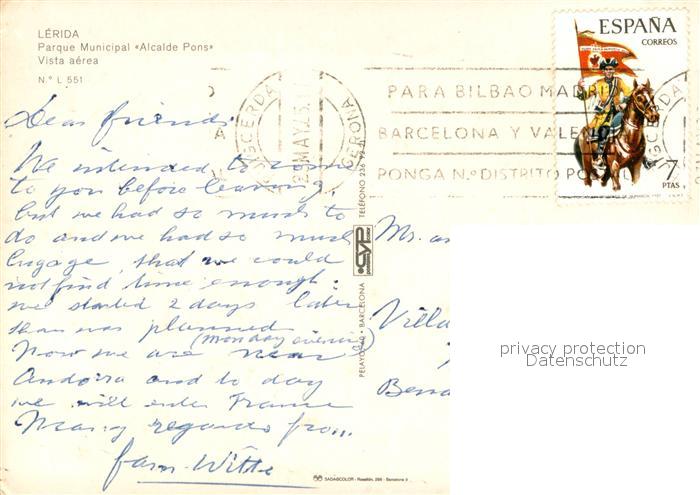 LÉRIDA
Parque Municipal «Alcalde Pons»
Vista aérea
N.º L 551
ESPAÑA
CORREOS
7
PTAS
PUIGCERDA
GERONA
MAY
PARA BILBAO MADRI
BARCELONA Y VALEN
PONGA N.º DISTRITO POSTAL
Dear friends
We intended to come
to you before leaving,
but we had so much to
do and we had so much
lugage that we could
not find time enough:
we started 2 days later
than was planned
(monday evening)
Now we are near
Andorra and to day
we will enter France
Many regards from
fam. Witte
Mr. an
Villa
Bena
PELAYO • BARCELONA TELÉFONO
CYP
SADAGCOLOR - Rosellón, 298 - Barcelona
privacy protection
Datenschutz